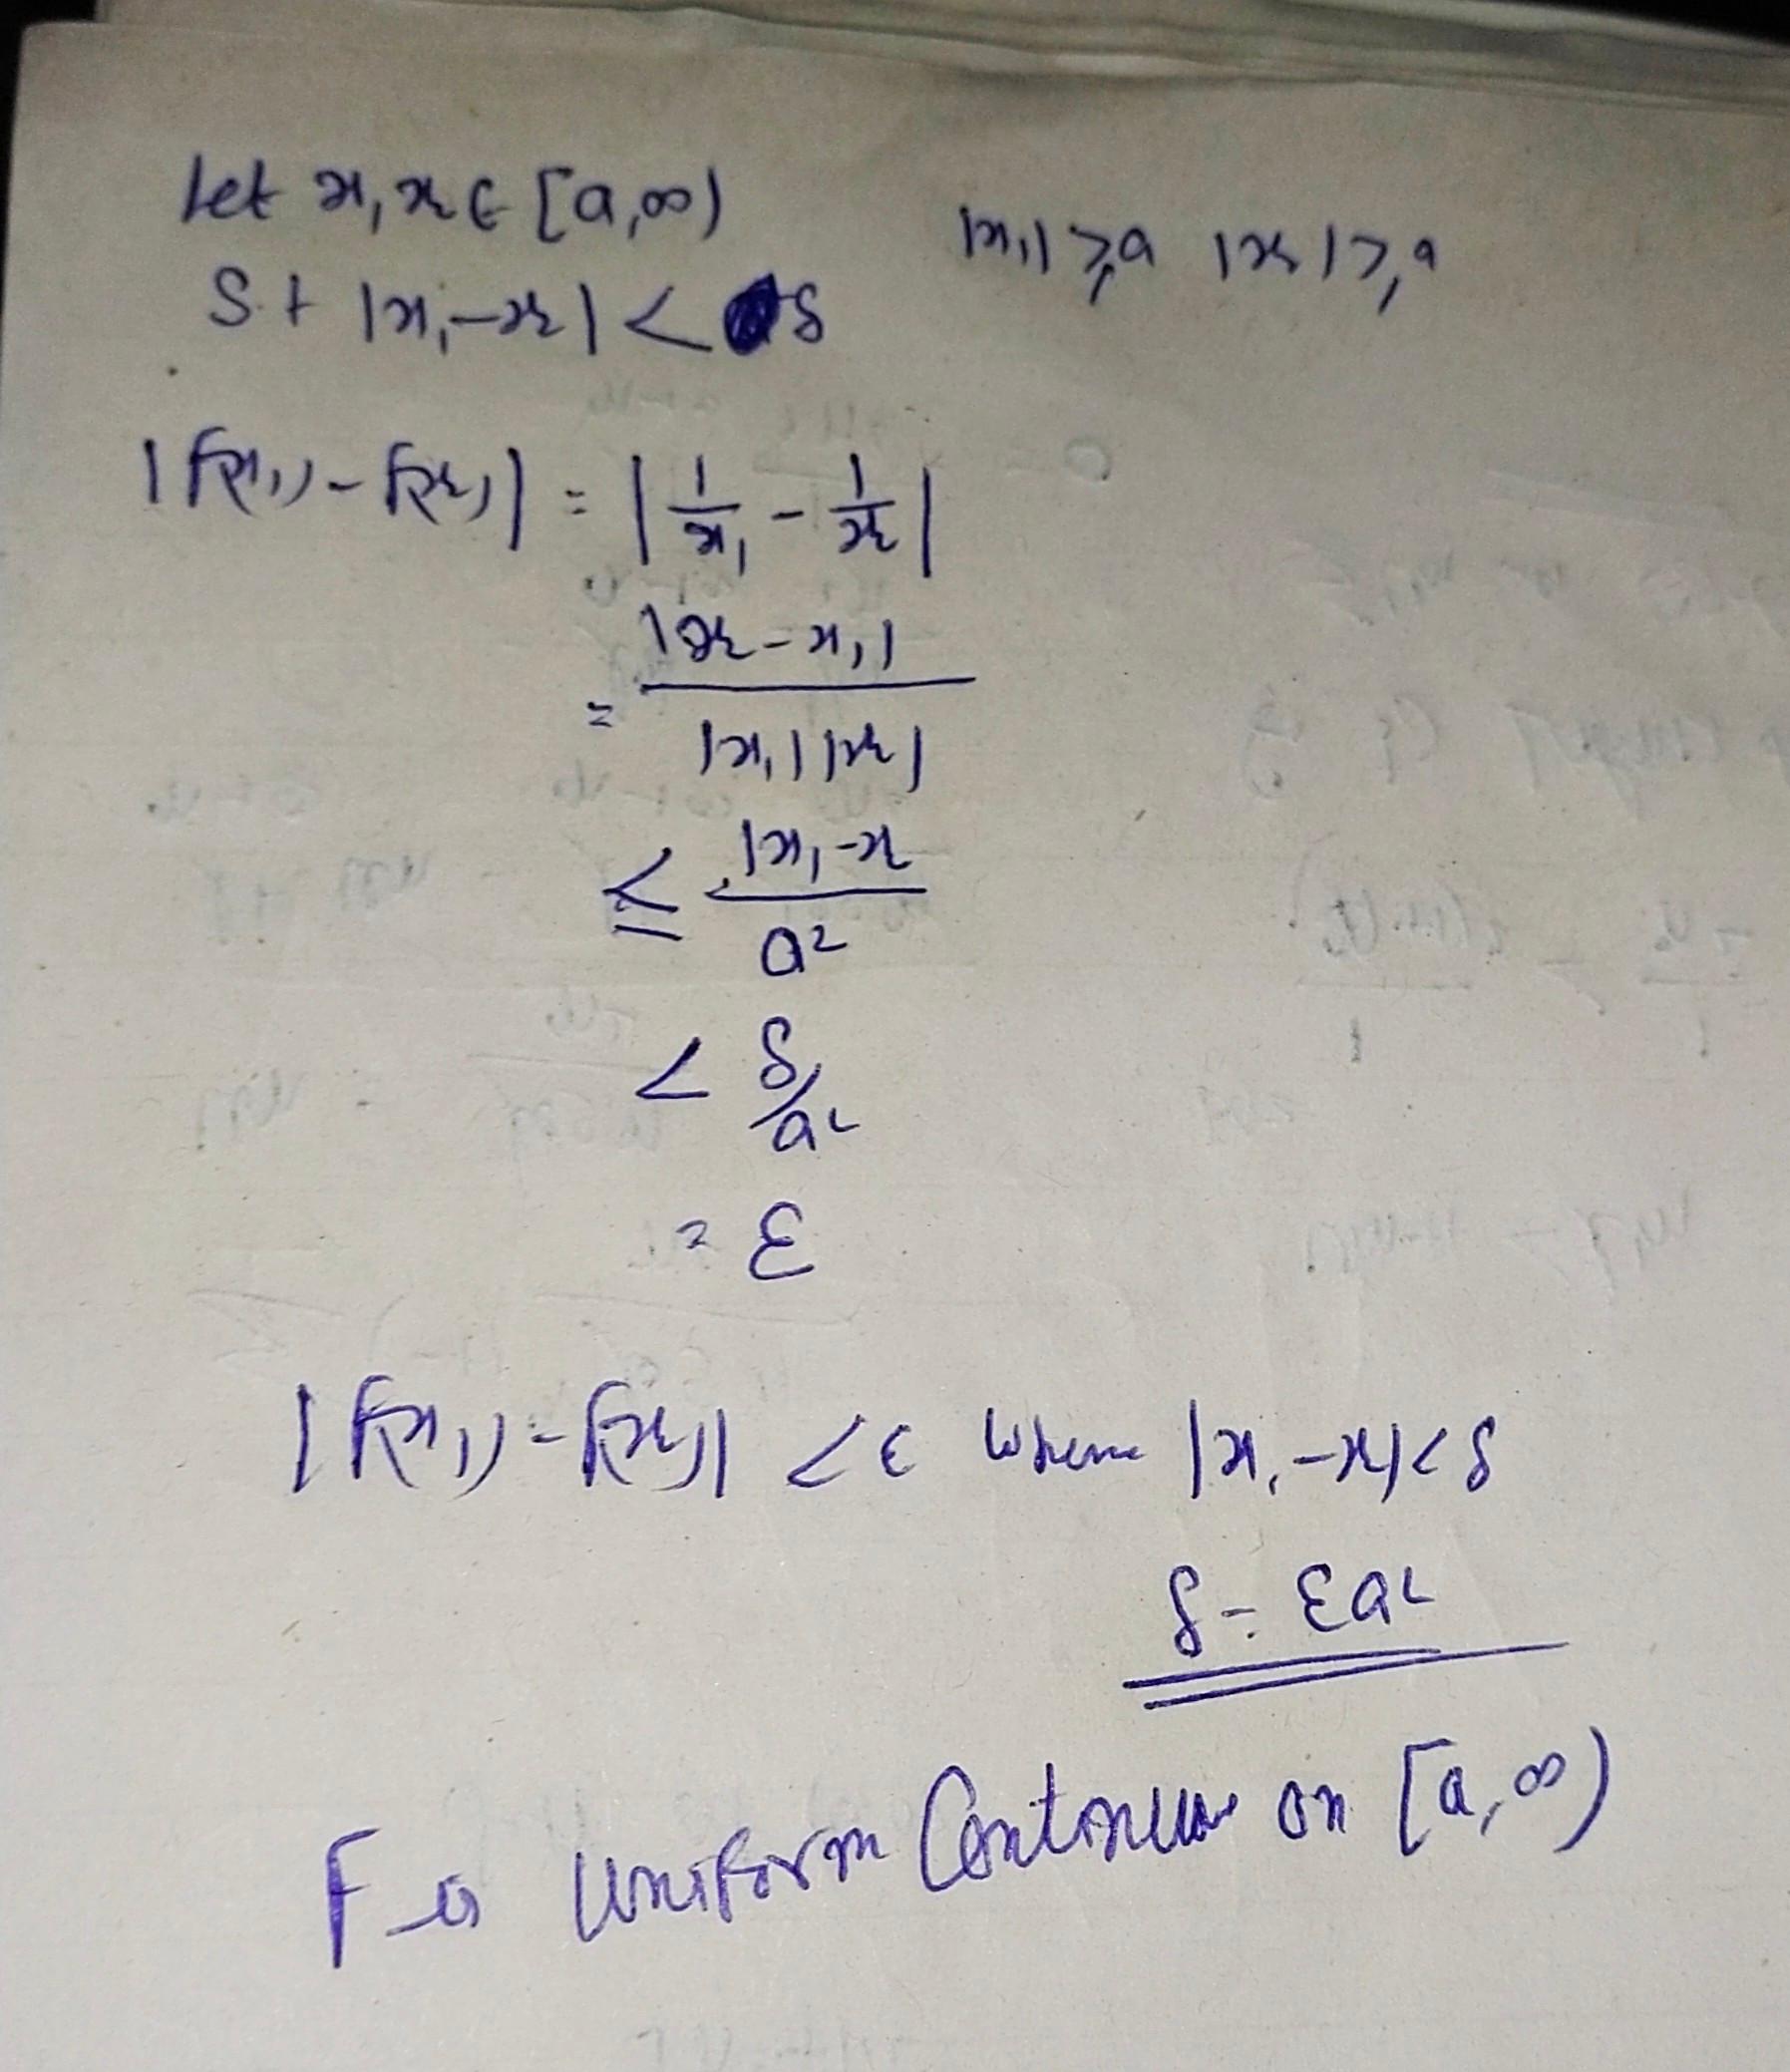 Let x₁, x₂ ∈ [a, ∞) |x₁| ≥ a |x₂| ≥ a
S.t |x₁ - x₂| < δ
|f(x₁) - f(x₂)| = |1/x₁ - 1/x₂|
= |x₂ - x₁| / |x₁| |x₂|
≤ |x₁ - x₂ / a²
< δ/a²
= ε
|f(x₁) - f(x₂)| < ε where |x₁ - x₂| < δ
δ = εa²
F is uniform Continuous on [a, ∞)